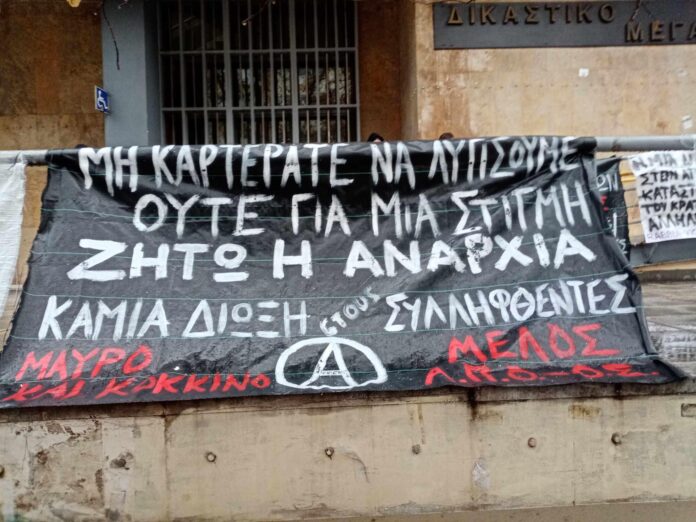 ΔΙΚΑΣΤΙΚΟ
ΜΕΓΑ
ΜΗ ΚΑΡΤΕΡΑΤΕ ΝΑ ΛΥΓΙΣΟΥΜΕ
ΟΥΤΕ ΓΙΑ ΜΙΑ ΣΤΙΓΜΗ
ΖΗΤΩ Η ΑΝΑΡΧΙΑ
ΚΑΜΙΑ ΔΙΩΞΗ ΣΤΟΥΣ ΣΥΛΛΗΦΘΕΝΤΕΣ
ΜΑΥΡΟ
ΚΑΙ ΚΟΚΚΙΝΟ
ΜΕΛΟΣ
Α.Π.Ο.-Ο.Σ.
ΚΑΤΑΣ
ΤΟΥ ΚΡΑΤ
ΑΛΛΗΛ